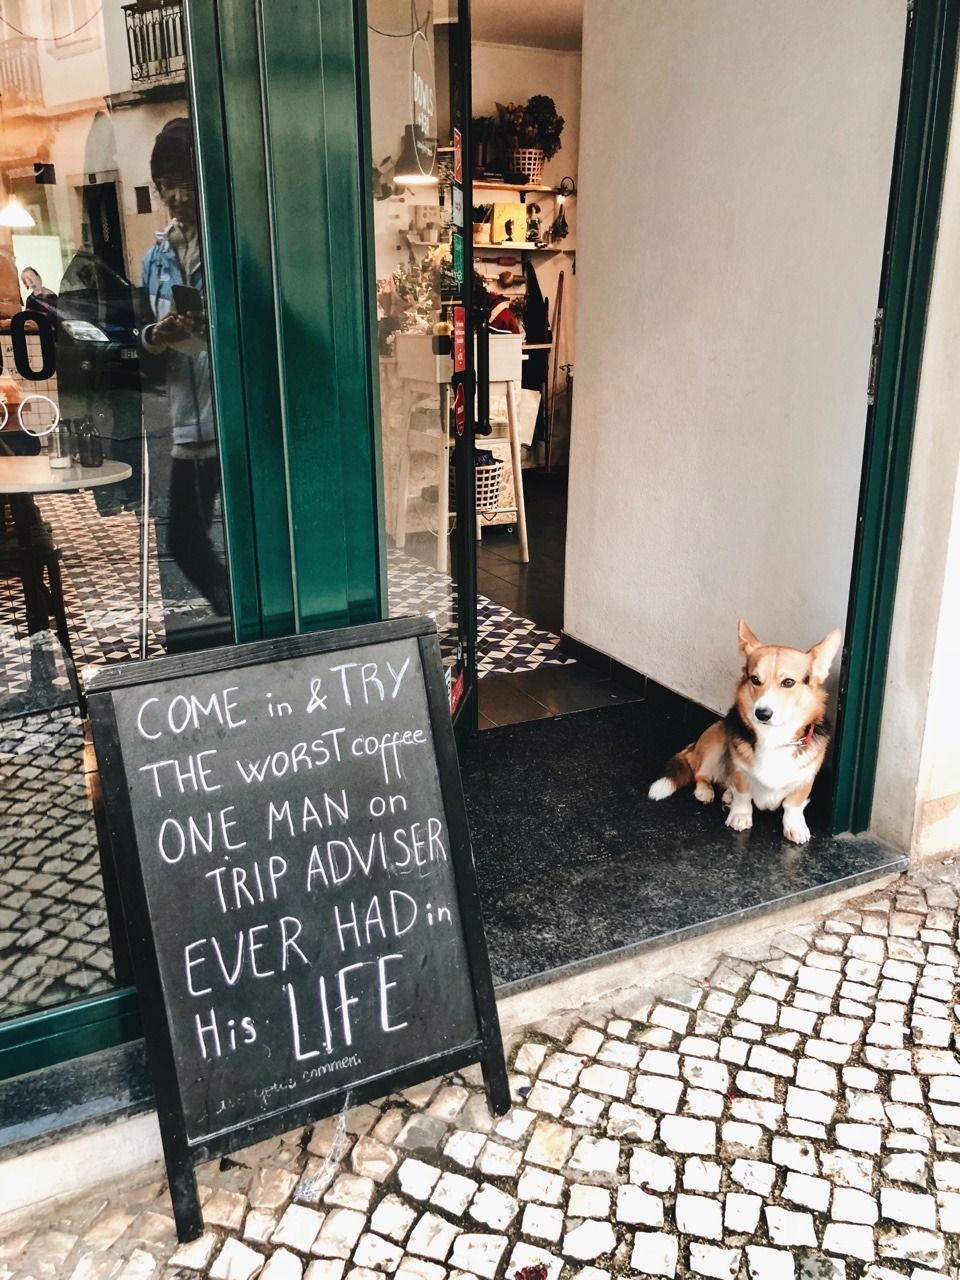 BOWLS
COME in & TRY
THE WORST coffee
ONE MAN on
TRIP ADVISER
EVER HAD in
His LIFE